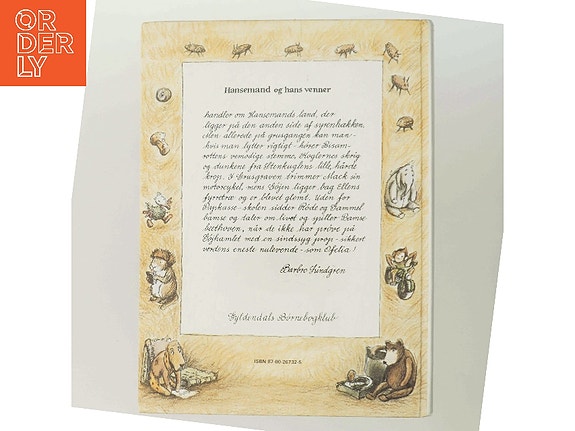 OR
DER
LY
Hansemand og hans venner
handler om Hansemands land, der
ligger på den anden side af syrenhækken.
Men allerede på grusgangen kan man-
hvis man lytter rigtigt - hører Bisam-
rottens vemodige stemme, Koglernes skrig
og dunkene fra Stenkuglens lille, hårde
krop. I Grusgraven trimmer Mack sin
motorcykel, mens Söjen ligger bag Ellens
fyrretræ og er blevet glemt. Uden for
skolen sidder Röde og Gammel
bamse og daler om livet og spiller Bamse
beethoven, når de ikke har prøve på
Töjhamlet med en sindssyg prop - sikkert
verdens eneste nulevende - som Ofelia!
Barbro Lindgren
Gyldendals Børnebogklub
ISBN 87-00-26732-5